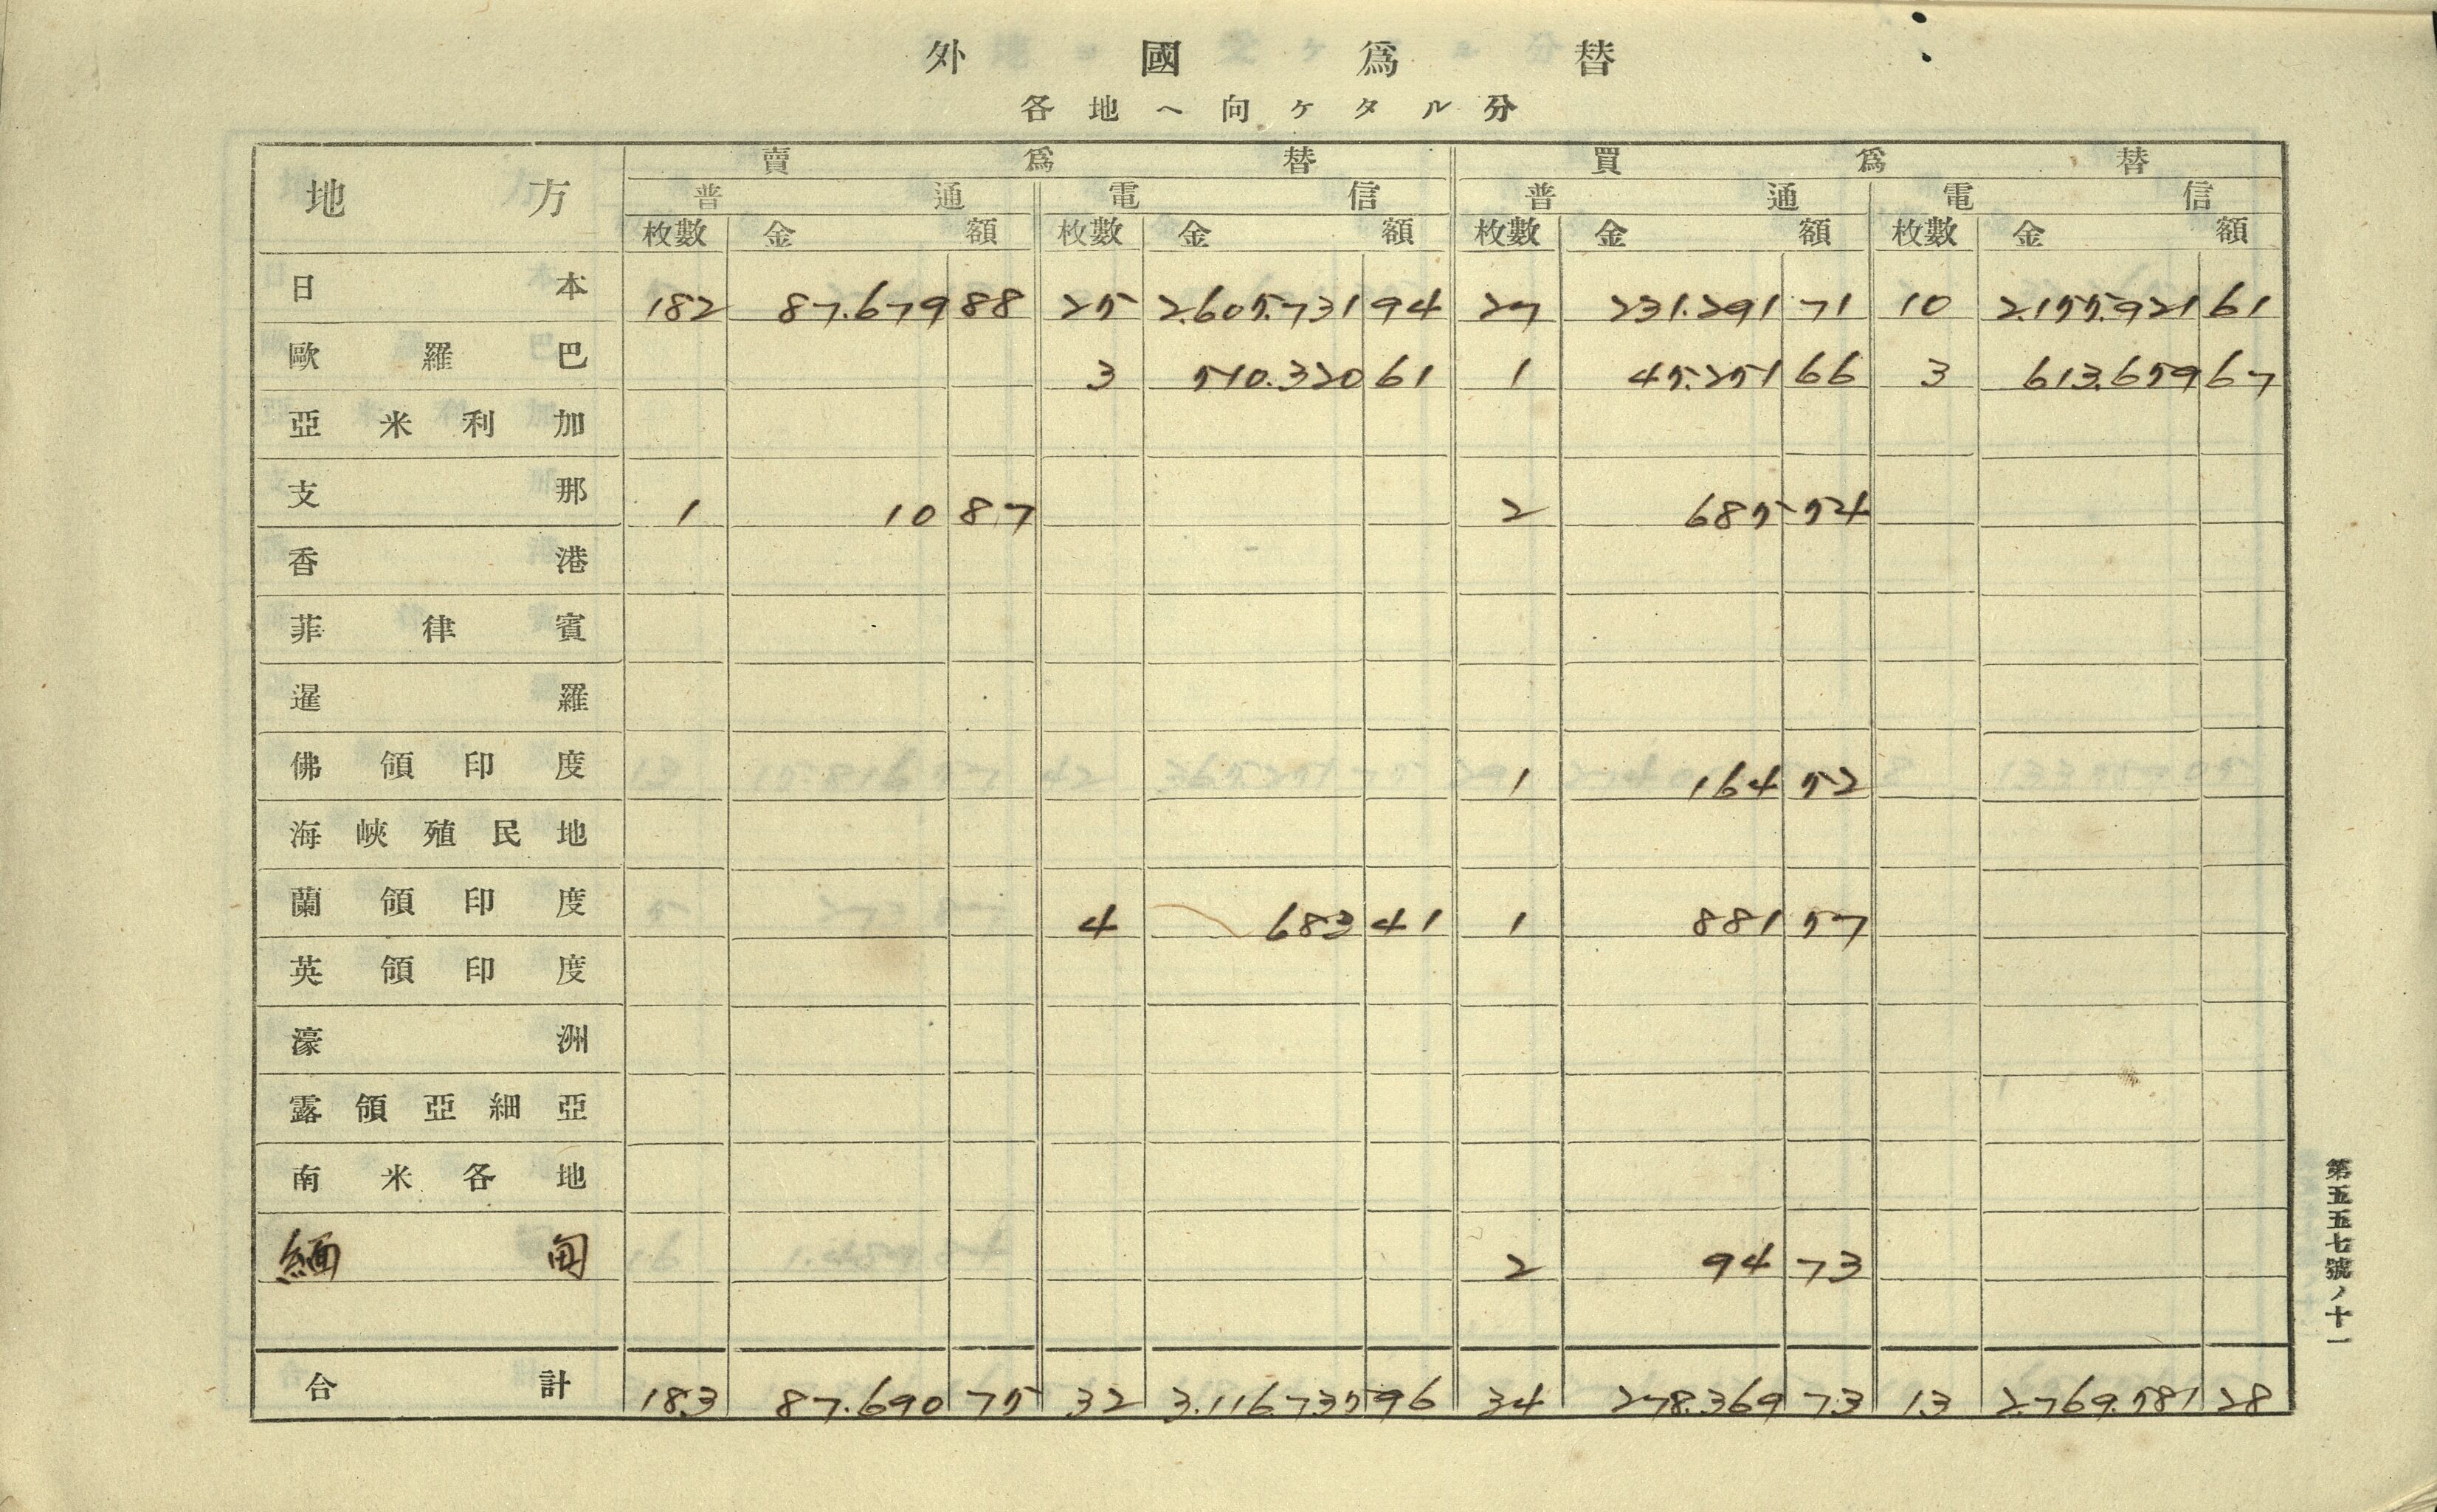 外國爲替
各地ヘ向ケタル分
地方 賣爲替 買爲替
普通 電信 普通 電信
枚數 金額 枚數 金額 枚數 金額 枚數 金額
日本 182 87.679 88 25 2.605.731 94 27 231.291 71 10 2.155.921 61
歐羅巴 3 510.320 61 1 45.251 66 3 613.659 67
亞米利加
支那 1 10 87 2 685 54
香港
菲律賓
暹羅
佛領印度 1 164 52
海峽殖民地
蘭領印度 4 683 41 1 881 57
英領印度
濠洲
露領亞細亞
南米各地
緬甸 2 94 73
合計 183 87.690 75 32 3.116.735 96 34 278.369 73 13 2.769.581 28
第五五七號ノ十一